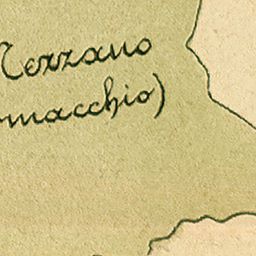 Mezzano
omacchio)